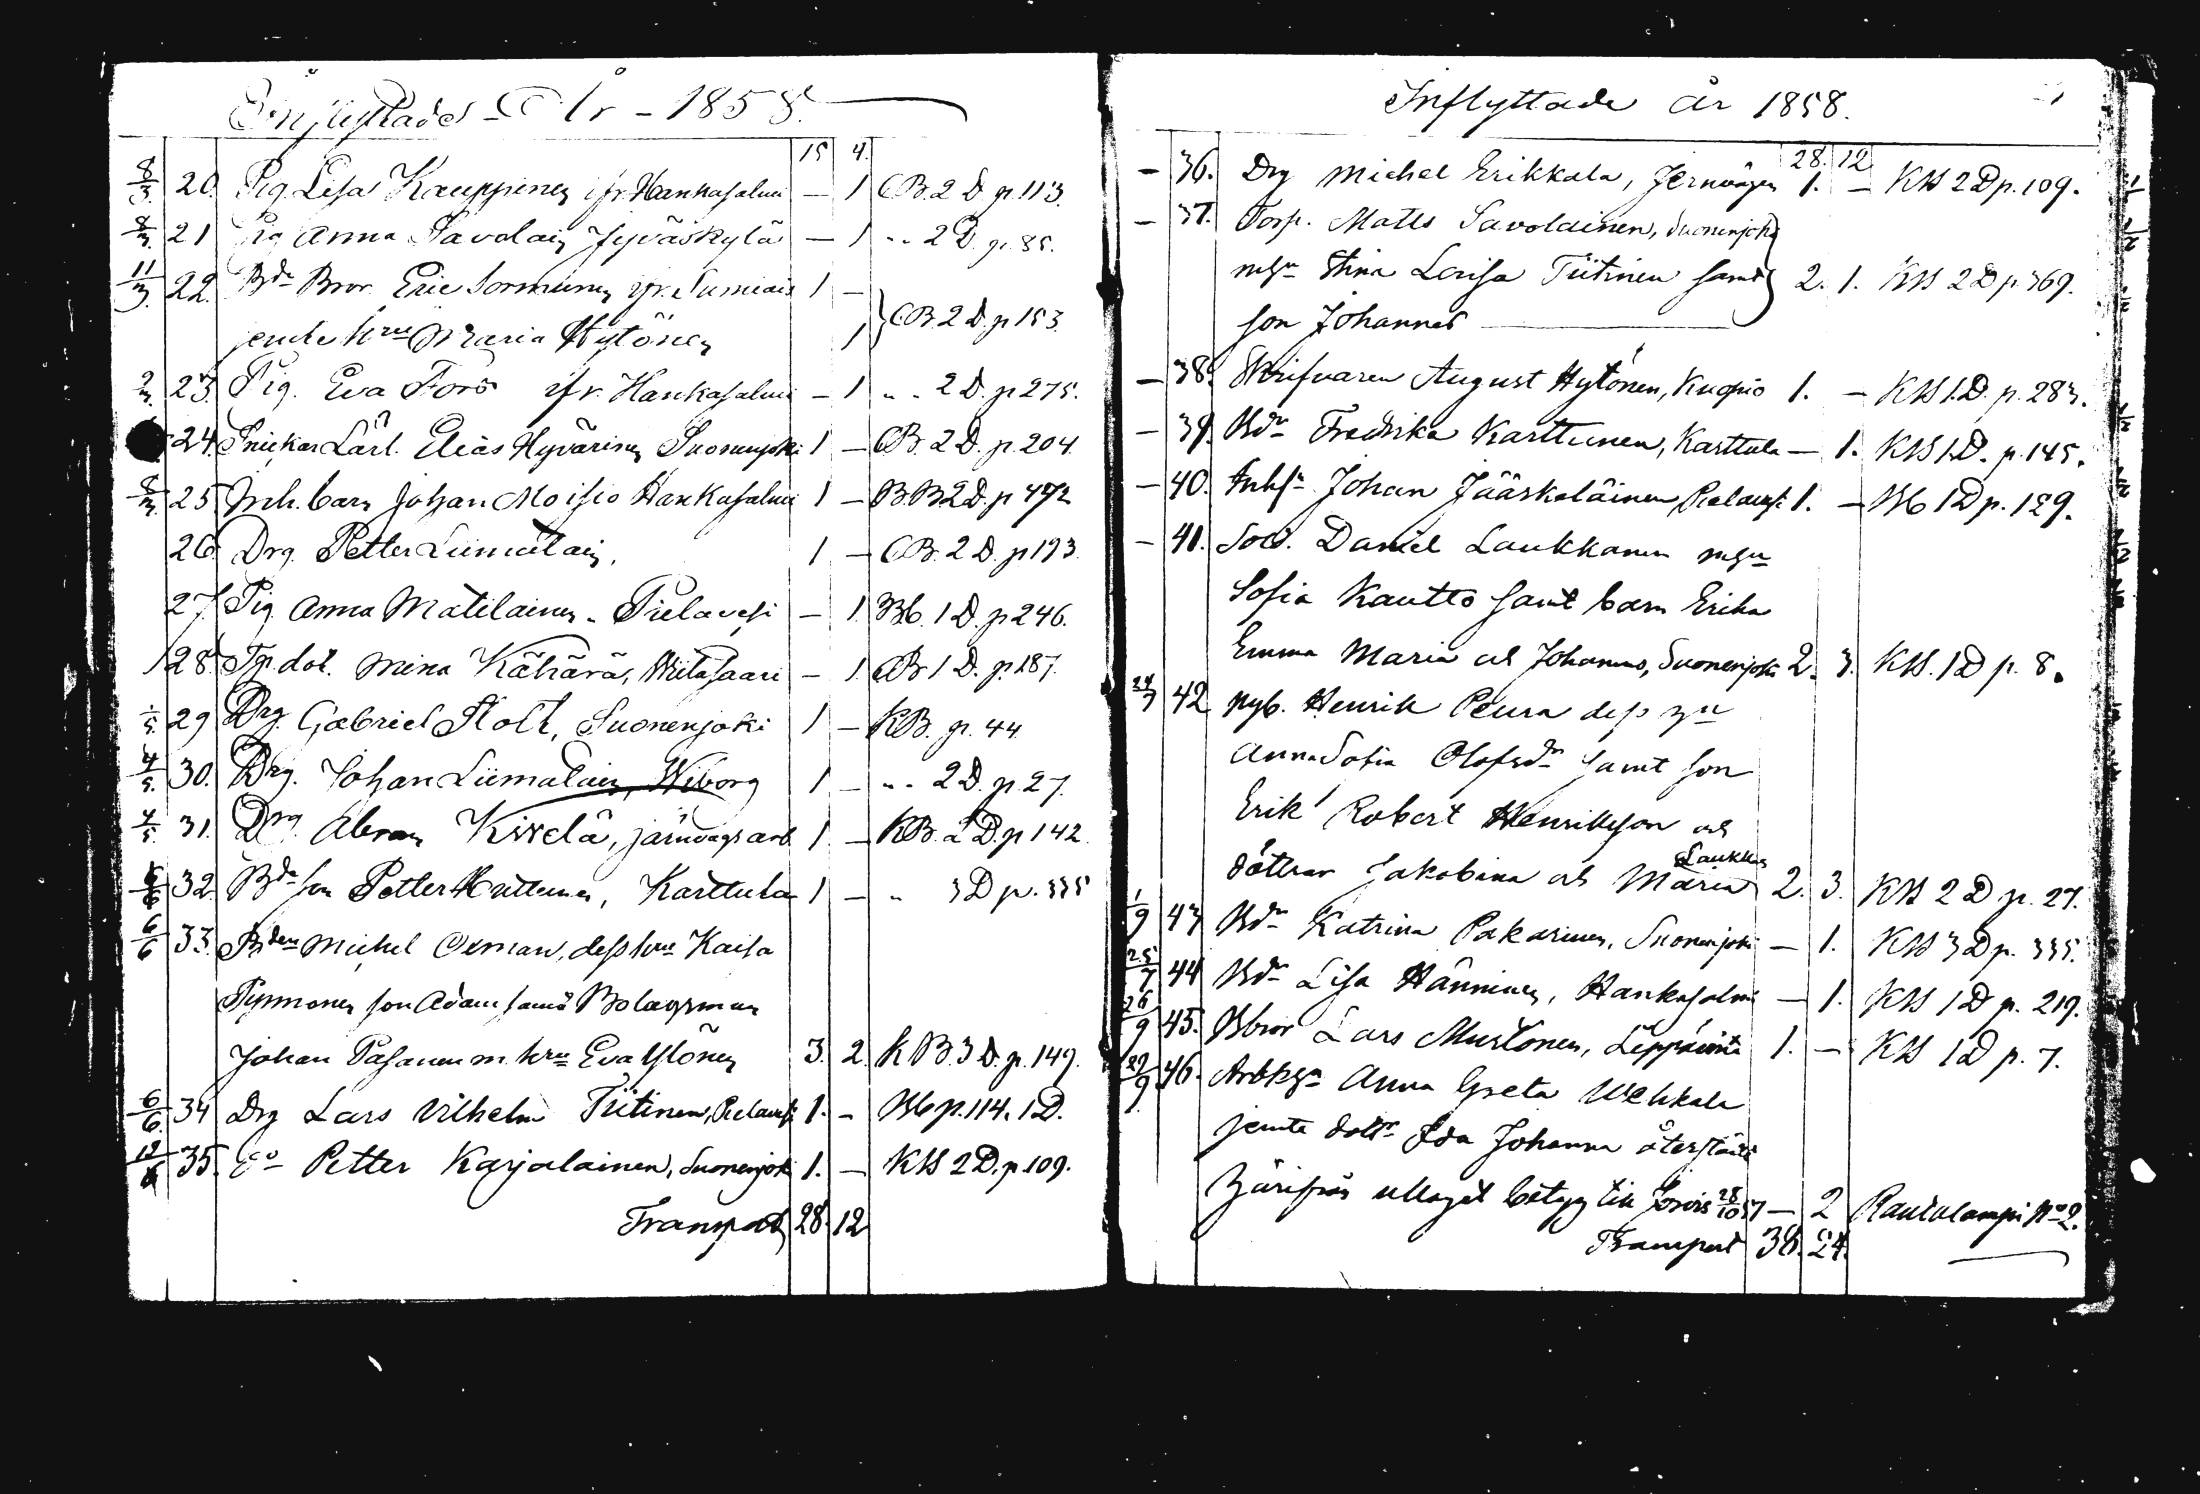 Inflyttade År - 1858.
15 4.
8/3 20. Pig. Lisa Kauppinen ifr. Hankasalmi — 1 CB. 2 D. p. 113.
8/3 21 Pig Anna Savolain Jyväskylä — 1 " 2 D. p. 85.
11/3 22. Bdn Bror Eric Sormunen ifr. Sumiais 1 —
jemte hru Maria Hytönen 1 } CB. 2 D. p 153.
2/3 23. Pig. Eva Fors ifr. Hankasalmi — 1 " 2 D. p 275.
24. Snickar Lärl. Elias Hyvärinen Suonenjoki 1 — CB. 2 D. p. 204.
8/3 25 Inh. barn Johan Moisio Hankasalmi 1 — BB 2 D. p 472
26 Drg. Petter Liimatain, 1 — CB. 2 D. p 193.
27. Pig. Anna Matilainen. Pielavesi — 1. Bb. 1 D. p 246.
28. Tp. dot. Mina Kähärä, Wiitasaari — 1 CB 1 D. p. 187.
1/5 29 Drg. Gabriel Stolt, Suonenjoki 1 — KB. p. 44.
4/5. 30. Drg. Johan Liimatain, Wiborg 1 — " 2 D. p. 27.
4/5. 31. Drg. Abram Kivelä, järnvägsarb. 1. — KB. 2 D. p 142.
6/6 32. Bdn son Petter Huttunen, Karttula 1 — " 3 D p. 335
6/6 33. Bden Michel Oeman, dess hru Kaisa
Tynnonen son Adam samt Bolagsman
Johan Pasanen m. hru Eva Ylönen 3. 2. KB. 3 D. p. 149.
6/6. 34 Drg Lars Vilhelm Tiitinen, Pielavesi 1. - Bb p. 114. 1 D.
12/6 35. do Petter Karjalainen, Suonenjoki 1. — KB 2 D. p. 109.
Transport 28. 12
Inflyttade år 1858.
28. 12
- 36. Drg Michel Erikkala, Jernvägen 1. — KB 2 D p. 109.
- 37. Torp. Matts Savolainen, Suonenjoki
m hu Stina Lovisa Tiitinen samt } 2. 1. KB 2 D p 369.
son Johannes
- 38. Skrifvaren August Hytönen, Kuopio 1. — KB 1. D. p. 283.
- 39. Bdr Fredrika Karttunen, Karttula — 1. KB 1. D. p. 145.
- 40. Inhs Johan Jääskeläinen Pielavesi 1. — Bb 1 D p. 129.
- 41. Sold. Daniel Laukkanen m hu
Sofia Kautto samt barn Erika
Emma Maria och Johannes, Suonenjoki 2. 3. KB. 1 D p. 8.
24/7 42 Nyb. Henrik Peura dess hu
Anna Sofia Olofsdr samt son
Erik Robert Henriksson och
döttrar Jakobina och Maria Laukkan 2. 3. KB 2 D p. 27.
1/9 43 Bdr Katrina Pakarinen, Suonenjoki — 1. KB 3 D p. 335.
25/7 44 Bdr Lisa Hänninen, Hankasalmi — 1. KB 1 D p. 219.
26/9 45. Bbror Lars Mustonen, Leppävirta 1. — KB 1 D p. 7.
29/9. 46. Arbkhu Anna Greta Wehkala
jemte dottr Ida Johanna återstäldt
härifrån uttaget betyg till Jorois 28/10 57 — 2 Rautalampi No 2.
Transport 38. 24.